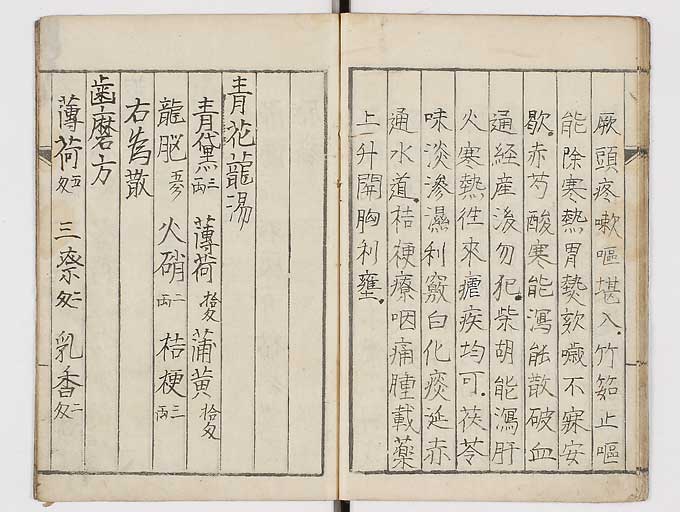 厥頭疼嗽嘔堪入.竹筎止嘔
能除寒熱胃熱欬噦不寐安
歇.赤芍酸寒能瀉能散破血
通経産後勿犯.柴胡能瀉肝
火寒熱往來瘧疾均可.茯苓
味淡滲濕利竅白化痰涎赤
通水道.桔梗療咽痛腫載藥
上升開胸利壅.
青花龍湯
青黛三両 薄荷拾匁 蒲黄拾匁
龍脳 火硝二両 桔梗三両
右為散
歯磨方
薄荷五匁 三柰二匁 乳香二匁